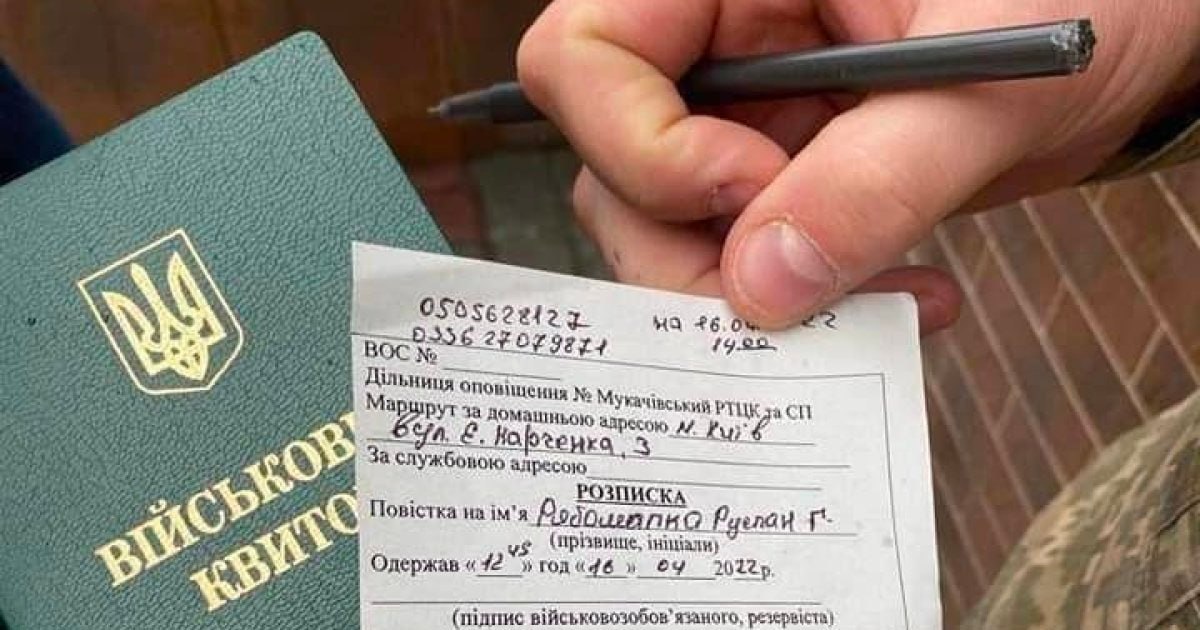 ВІЙСЬКОВ
КВИТО
0505628127
0336 27079871
на 16.04 22
14.00
ВОС №
Дільниця оповіщення № Мукачівський РТЦК та СП
Маршрут за домашньою адресою м. Київ
вул. Є. Харченка, 3
За службовою адресою
РОЗПИСКА
Повістка на ім'я Руслан Г.
(прізвище, ініціали)
Одержав «12 45» год «16» 04 2022р.
(підпис військовозобов'язаного, резервіста)